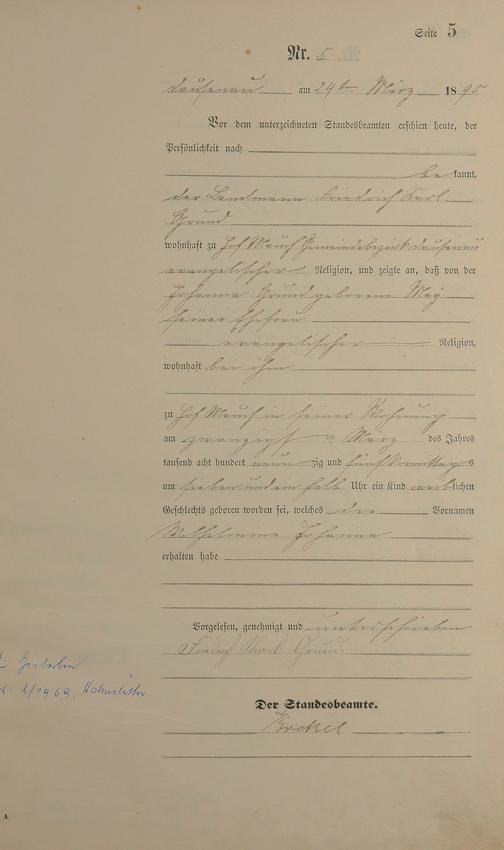 Seite 5
Nr. 5
Dausenau am 24ten März 1895
Vor dem unterzeichneten Standesbeamten erschien heute, der
Persönlichkeit nach
bekannt,
der Landmann Friedrich Karl
Grund
wohnhaft zu Hof Mauch Gemeindebezirk Dausenau
evangelischer Religion, und zeigte an, daß von der
Johanna Grund geborene May
seiner Ehefrau
evangelischer Religion,
wohnhaft bei ihm
zu Hof Mauch in seiner Wohnung
am zwanzigsten März des Jahres
tausend acht hundert neunzig und fünf Vormittags
um sieben und ein halb Uhr ein Kind weiblichen
Geschlechts geboren worden sei, welches die Vornamen
Wilhelmine Johanna
erhalten habe
Vorgelesen, genehmigt und unterschrieben
Friedrich Karl Grund.
Der Standesbeamte.
Gestorben
2/1969
A.